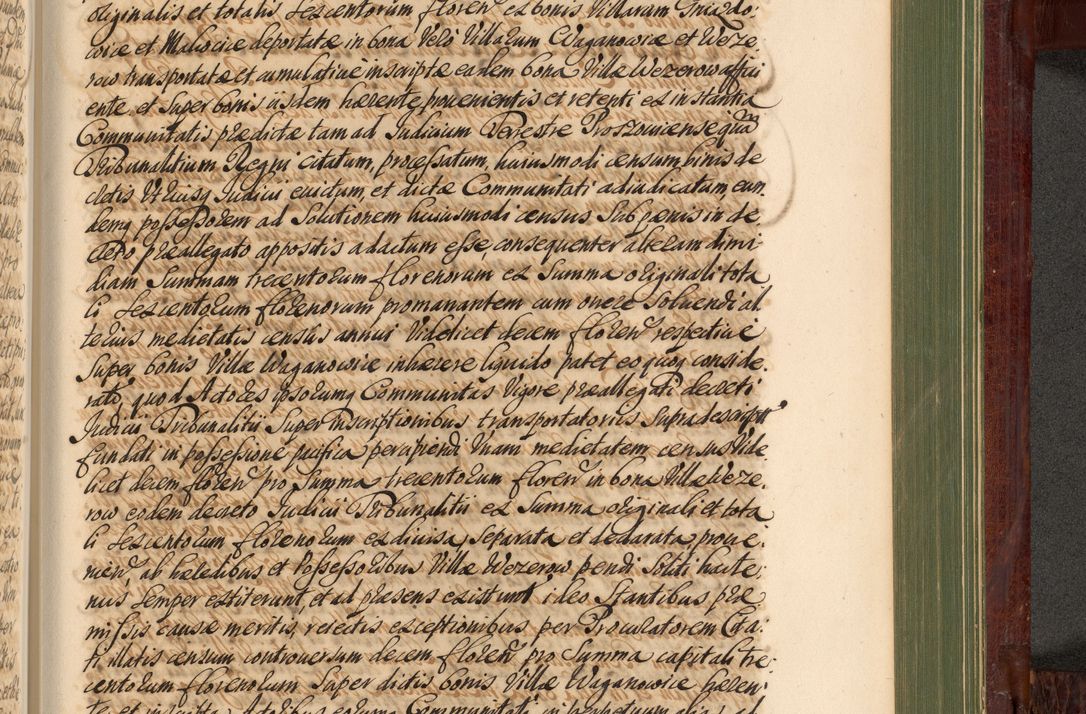 originalis et totalis sescentorum floren ex bonis Villarum Gniazdo,
wicæ et Maliociæ deportatæ in bona Vero Villarum Waganowicæ et Weze,
row transportatæ et cumulativè inscriptæ eadem bona Villæ Wezerow affici
ente, et super bonis iisdem hærente, provenientis et retenti ex instantia
Communitatis prædictæ tam ad Judicium Terrestre Proszoviense quam
Tribunalitium Regni citatum, processatum, huiusmodi censum binis de
cretis Utriusq Judicii evictum, et dictæ Communitati adiudicatum, eun,
demq possessorem ad Solutionem huiusmodi census sub pœnis in de,
creto præallegato appositis adactum esse, consequenter alteram dimi,
diam Summam trecentorum florenorum ex Summa originali tota
li sescentorum florenorum promanantem cum onere solvendi al
terius medietatis census annui Videlicet decem floren respectivè
super bonis Villæ Waganowicæ inhærere liquido patet eo quoq conside,
rato, quod Actores ipsorumq Communitas Vigore præallegati decreti
Judicii Tribunalitii super Inscriptionibus transportatoriis supra descriptis
fundati in possessione pacifica percipiendi Unam medietatem census Vide
licet decem floren pro Summa trecentorum floren in bona Villæ Weze,
row eodem decreto Judicii Tribunalitii ex Summa originali et tota
li sescentorum florenorum ex divisa, separata et declarata prove,
nien, ab hæredibus et Possessoribus Villæ Wezerow pendi Solidi hucte,
nus semper extiterunt, et ad præsens existunt, ideo stantibus præ,
missis causæ meritis, reiectis exceptionibus per Procuratorem Cita,
ti illatis censum controversum decem floren pro Summa capitali tre,
centorum florenorum super dictis bonis Villæ Waganowicæ hæren,
te et inscripta Actoribus eorumq Communitati in perpetuum